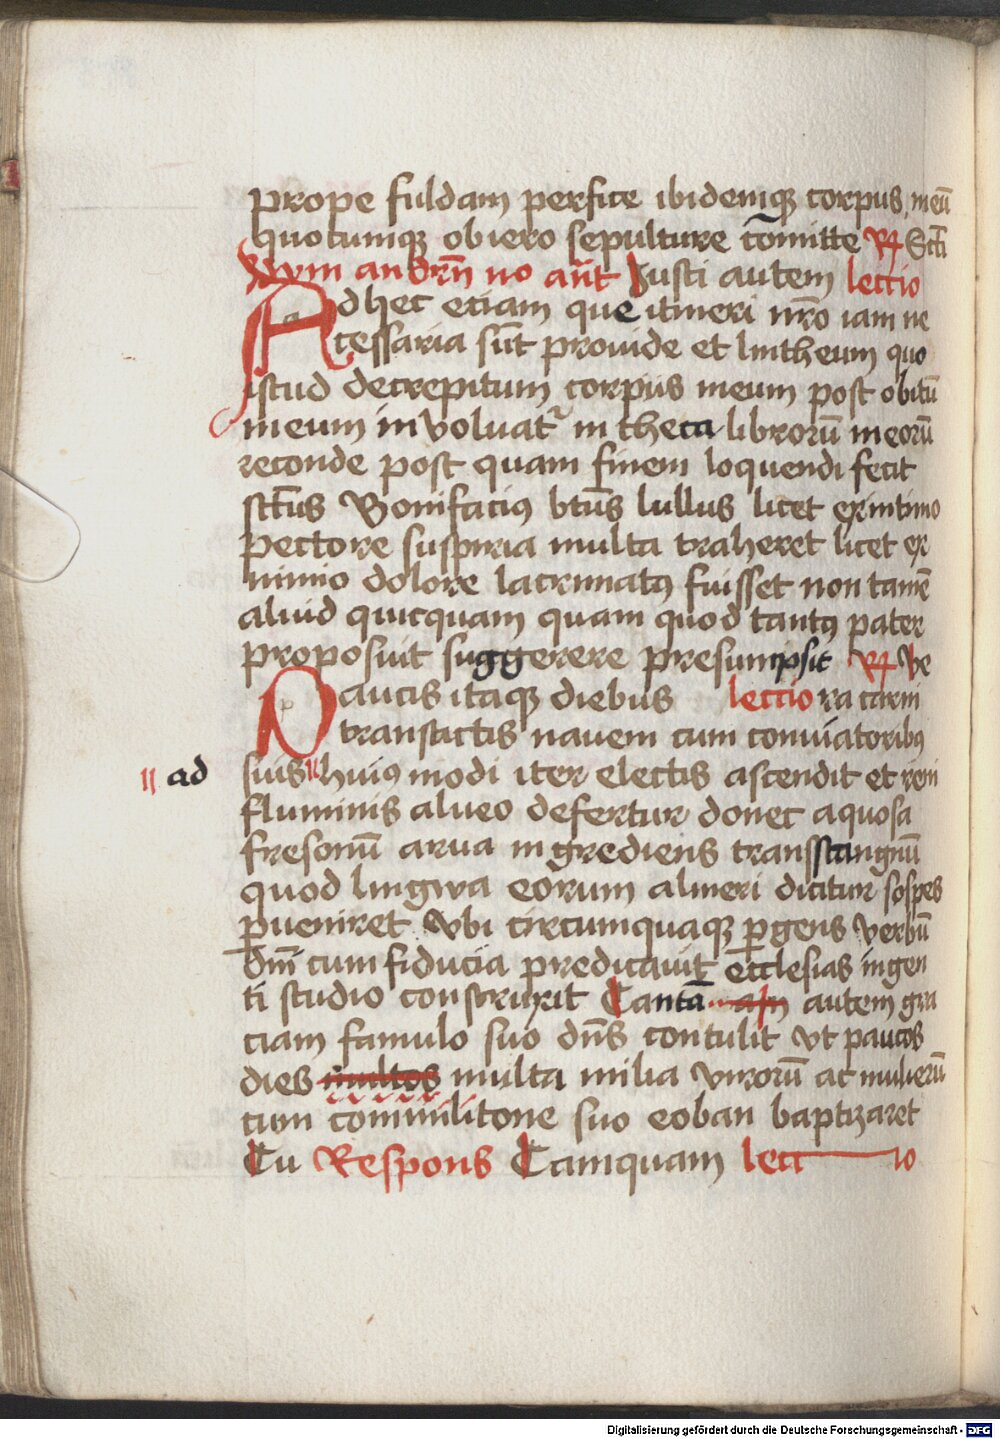 prope fuldam perfice ibidemqꝫ corpus meū
quocumqꝫ obiero sepulture cōmitte ℞ Sctī
an no ant̄ Iusti autem lectio
Ad hec etiam que itineri nr̄o iam ne
cessaria sūt prouide et lintheum quo
istud decrepitum corpus meum post obitū
meum in voluat᷑ in theca librorū meorū
reconde post quam finem loquendi fecit
sctūs Bonifaciꝰ btūs lullus licet ex intimo
pectore suspiria multa traheret licet ex
nimio dolore lacrimatꝰ fuisset non tamē
aliud quicquam quam quod tantꝰ pater
proposuit suggerere presumpsit ℞ Ve
Paucis itaqꝫ diebus lectio ra carni
transactis nauem cum conuiatoribꝰ
ad suis huiꝰ modi iter electis ascendit et reni
fluminis alueo defertur donec aquosa
fresonū arua ingrediens trans stangnū
quod lingwa eorum almeri dicitur sospes
ꝑueniret Vbi circumquaqꝫ ꝑgens verbū
dnī cum fiducia predicauit ecclesias ingen
ti studio construxit Cantā autem gra
ciam famulo suo dn̄s contulit vt paucos
dies multos multa milia virorū ac mulierū
cum commilitone suo eoban baptizaret
Tu Respons Tamquam lectio
Digitalisierung gefördert durch die Deutsche Forschungsgemeinschaft - DFG